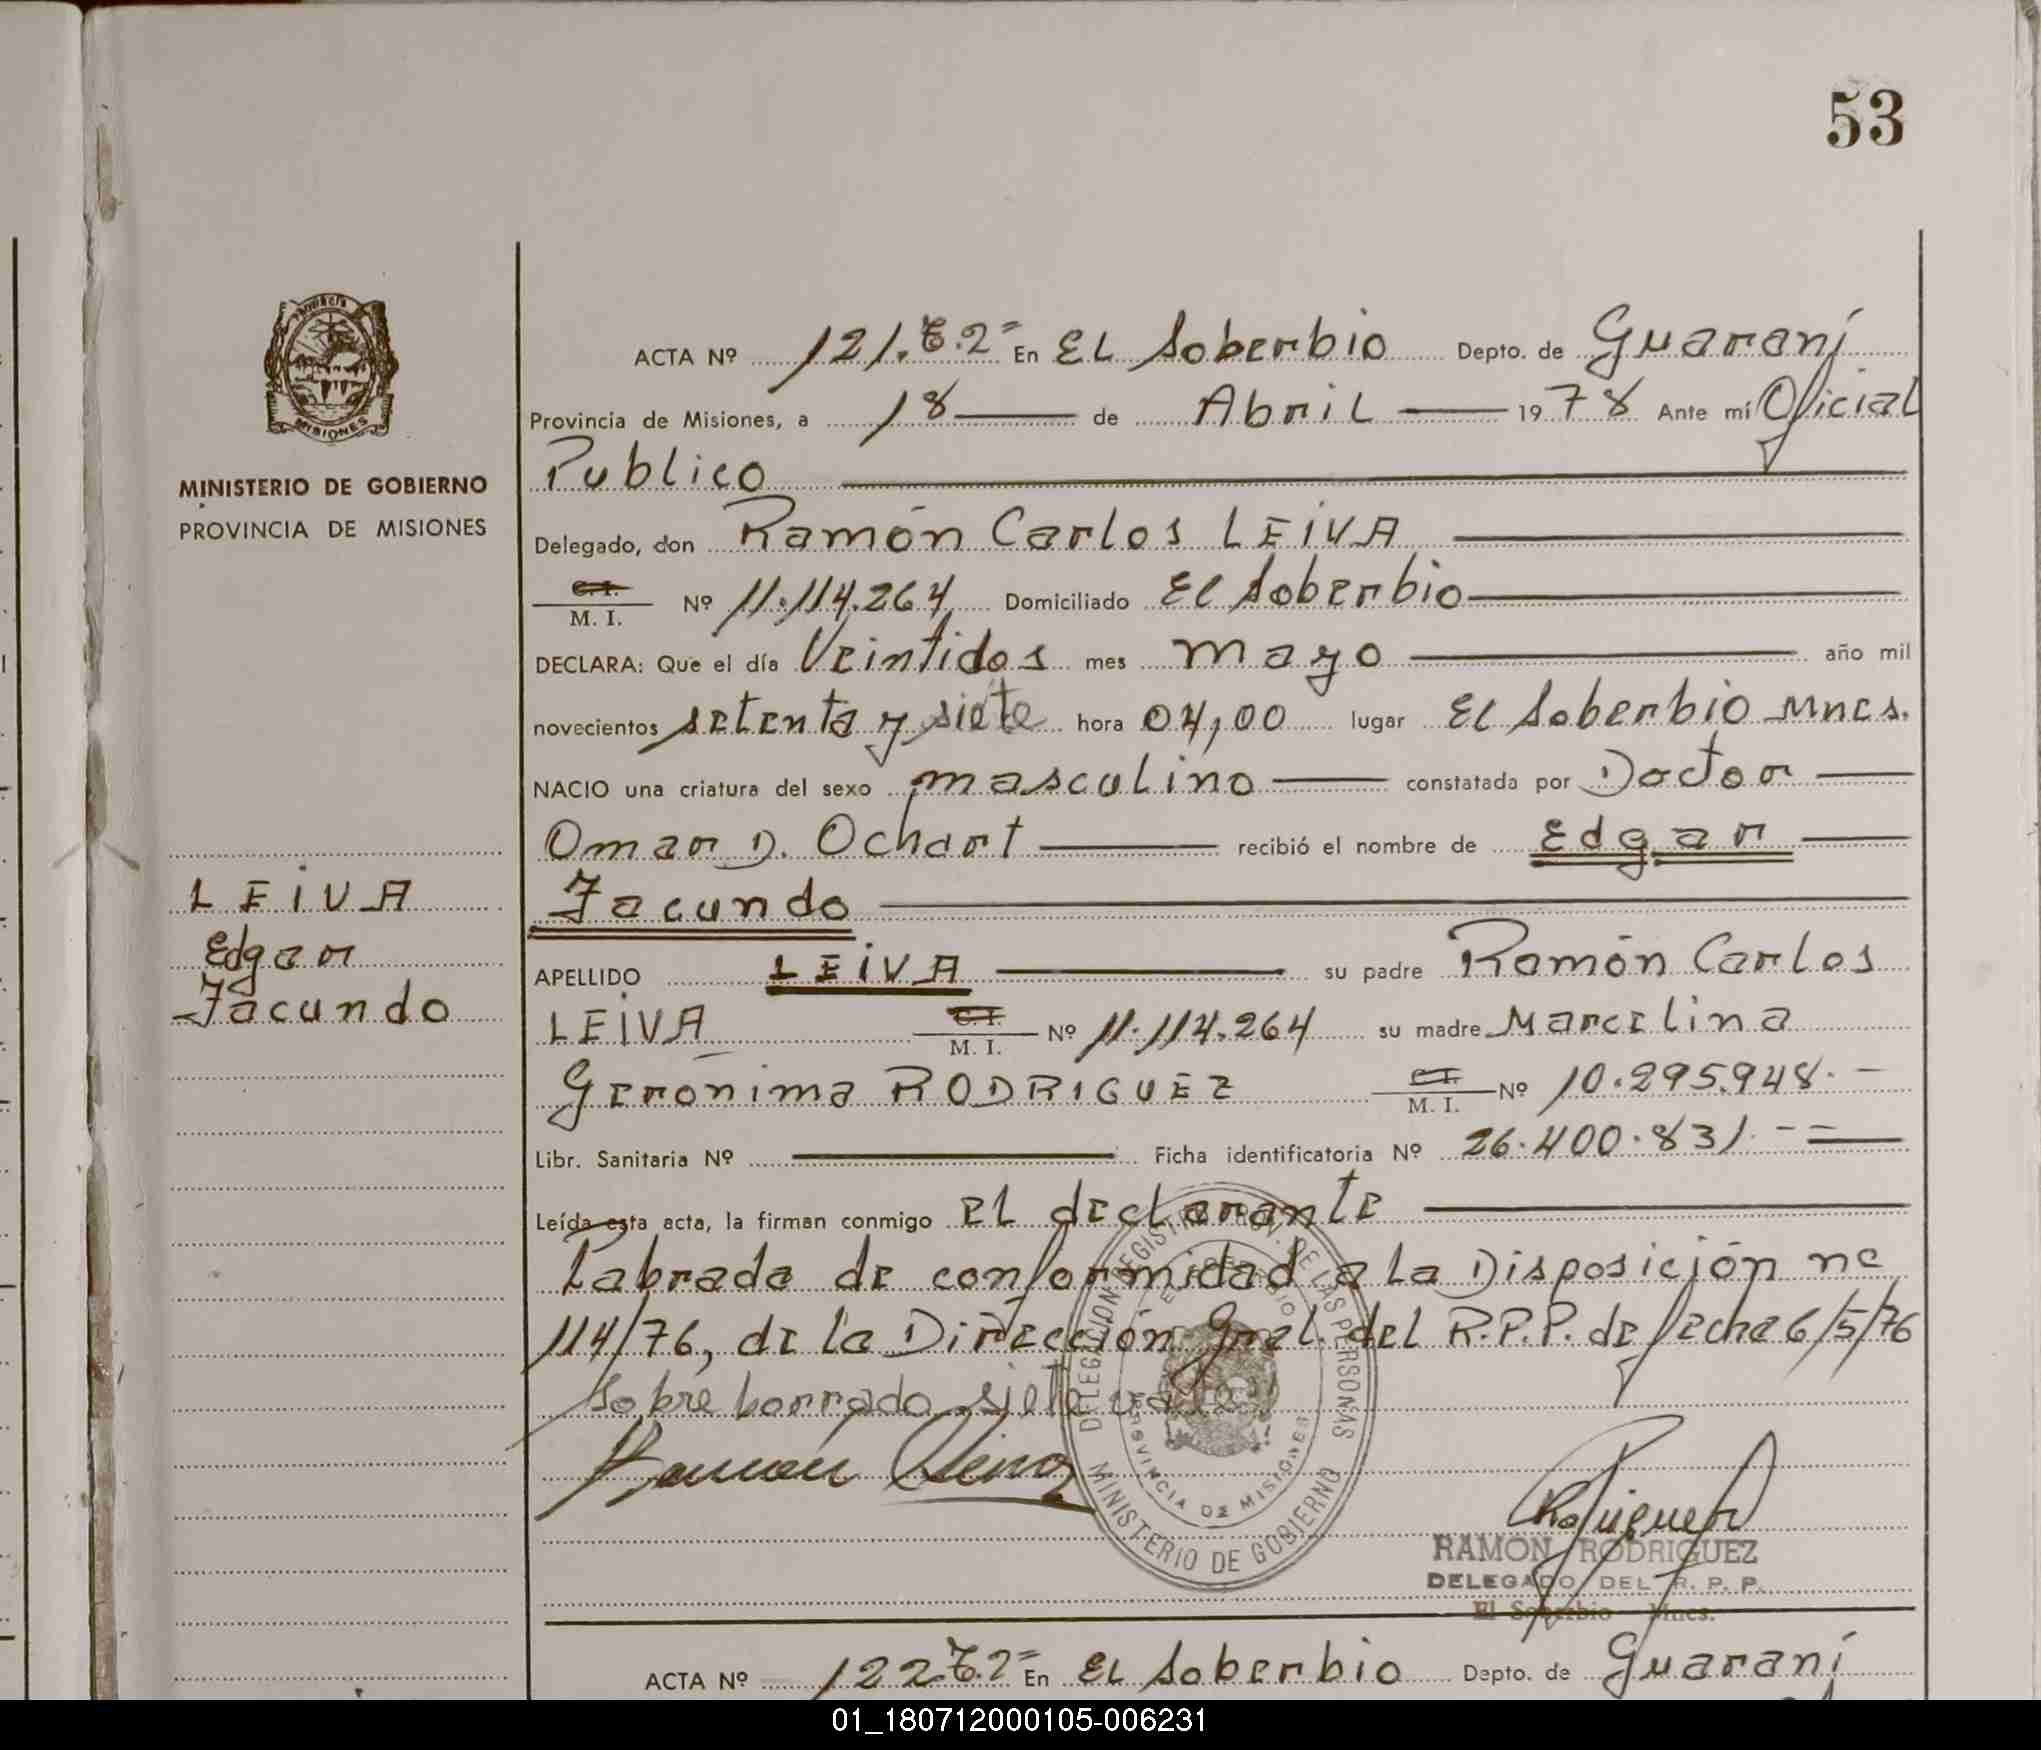 53
Provincia
MISIONES
MINISTERIO DE GOBIERNO
PROVINCIA DE MISIONES
LEIVA
Edgar
Facundo
ACTA Nº 121. T.2º En EL Soberbio Depto. de Guaraní
Provincia de Misiones, a 18 de Abril 1978 Ante mí Oficial
Publico
Delegado, don Ramón Carlos LEIVA
C. I.
M. I. Nº 11.114.264 Domiciliado El Soberbio
DECLARA: Que el día Veintidos mes mayo año mil
novecientos setenta y siete hora 04,00 lugar El Soberbio Mnes.
NACIO una criatura del sexo masculino constatada por Doctor
Omar D. Ochart recibió el nombre de Edgar
Facundo
APELLIDO LEIVA su padre Ramón Carlos
LEIVA C. I. M. I. Nº 11.114.264 su madre Marcelina
Gerónima RODRIGUEZ C. I. M. I. Nº 10.295.948.-
Libr. Sanitaria Nº Ficha identificatoria Nº 26.400.831.--
Leída esta acta, la firman conmigo el declarante
Labrada de conformidad a la Disposición nº
114/76, de la Dirección Gral. del R.P.P. de fecha 6/5/76
Sobre borrado siete vale
Ramón Leiva
DELEGACION REGISTRO PROV. DE LAS PERSONAS
EL SOBERBIO
PROVINCIA DE MISIONES
MINISTERIO DE GOBIERNO
RAMON RODRIGUEZ
DELEGADO DEL R. P. P.
El Soberbio Mnes.
ACTA Nº 122 T.2º En EL Soberbio Depto. de Guaraní
01_180712000105-006231